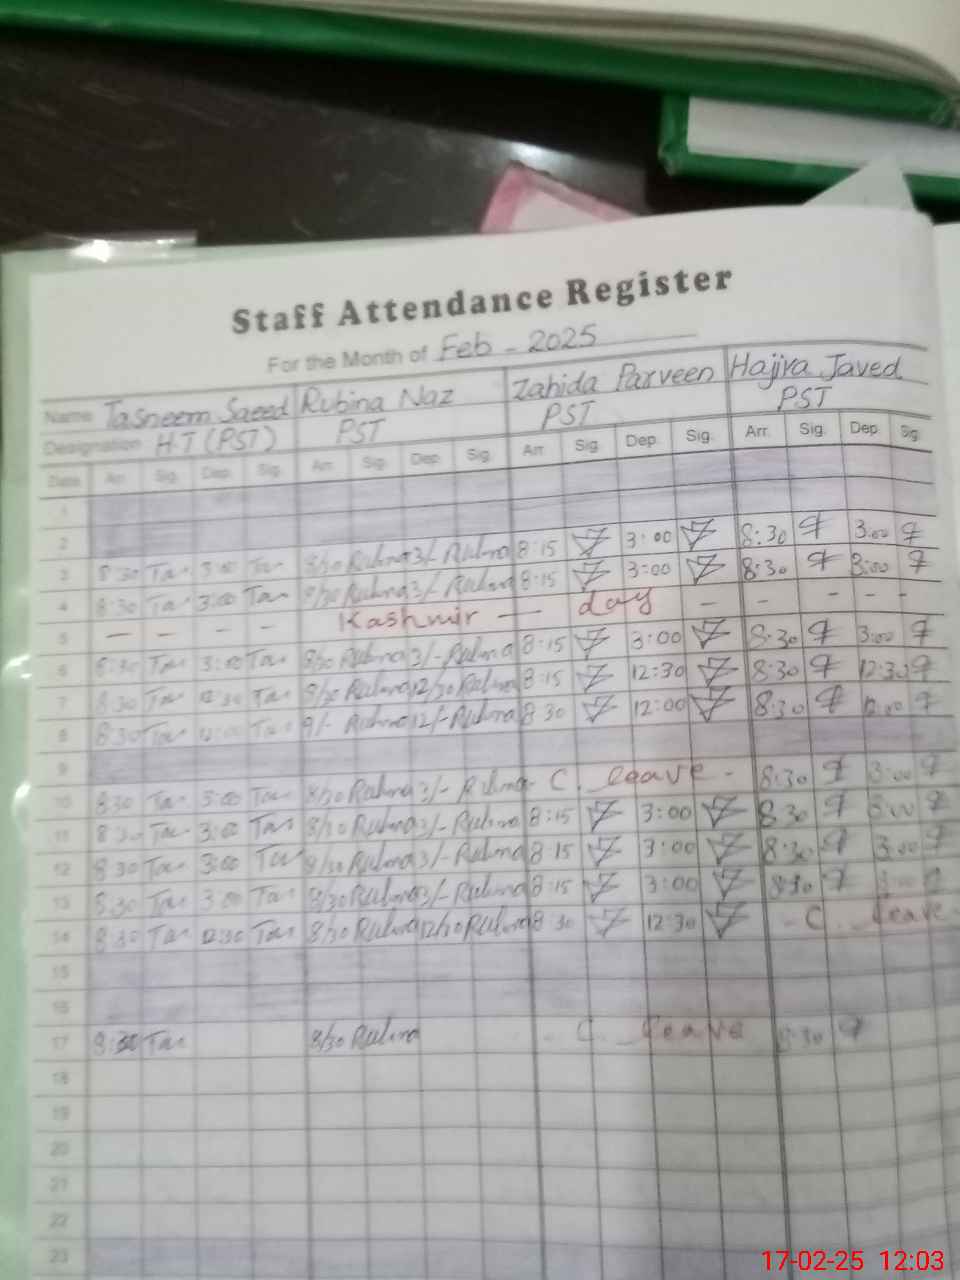 Staff Attendance Register
For the Month of Feb - 2025
Name Tasneem Saeed Rubina Naz Zahida Parveen Hajira Javed
Designation H.T (PST) PST PST PST
Date Arr. Sig. Dep. Sig. Arr. Sig. Dep. Sig. Arr. Sig. Dep. Sig. Arr. Sig. Dep. Sig.
1
2
3 8:30 Tas 3:00 Tas 8/30 Rubina 3/- Rubina 8:15 3:00 8:30 3:00
4 8:30 Tas 3:00 Tas 8/30 Rubina 3/- Rubina 8:15 3:00 8:30 3:00
5 - - - - Kashmir - day - - - - -
6 8:30 Tas 3:00 Tas 8/30 Rubina 3/- Rubina 8:15 3:00 8:30 3:00
7 8:30 Tas 12:30 Tas 8/30 Rubina 12/30 Rubina 8:15 12:30 8:30 12:30
8 8:30 Tas 12:00 Tas 9/- Rubina 12/- Rubina 8 30 12:00 8:30 12:00
9
10 8:30 Tas 3:00 Tas 8/30 Rubina 3/- Rubina - C. leave - 8:30 3:00
11 8:30 Tas 3:00 Tas 8/30 Rubina 3/- Rubina 8:15 3:00 8:30 3:00
12 8:30 Tas 3:00 Tas 8/30 Rubina 3/- Rubina 8:15 3:00 8:30 3:00
13 8:30 Tas 3:00 Tas 8/30 Rubina 3/- Rubina 8:15 3:00 8:30
14 8:30 Tas 12:30 Tas 8/30 Rubina 12/30 Rubina 8:30 12:30 - C. leave -
15
16
17 8:30 Tas 8/30 Rubina - C. leave 8:30
18
19
20
21
22
23
17-02-25 12:03